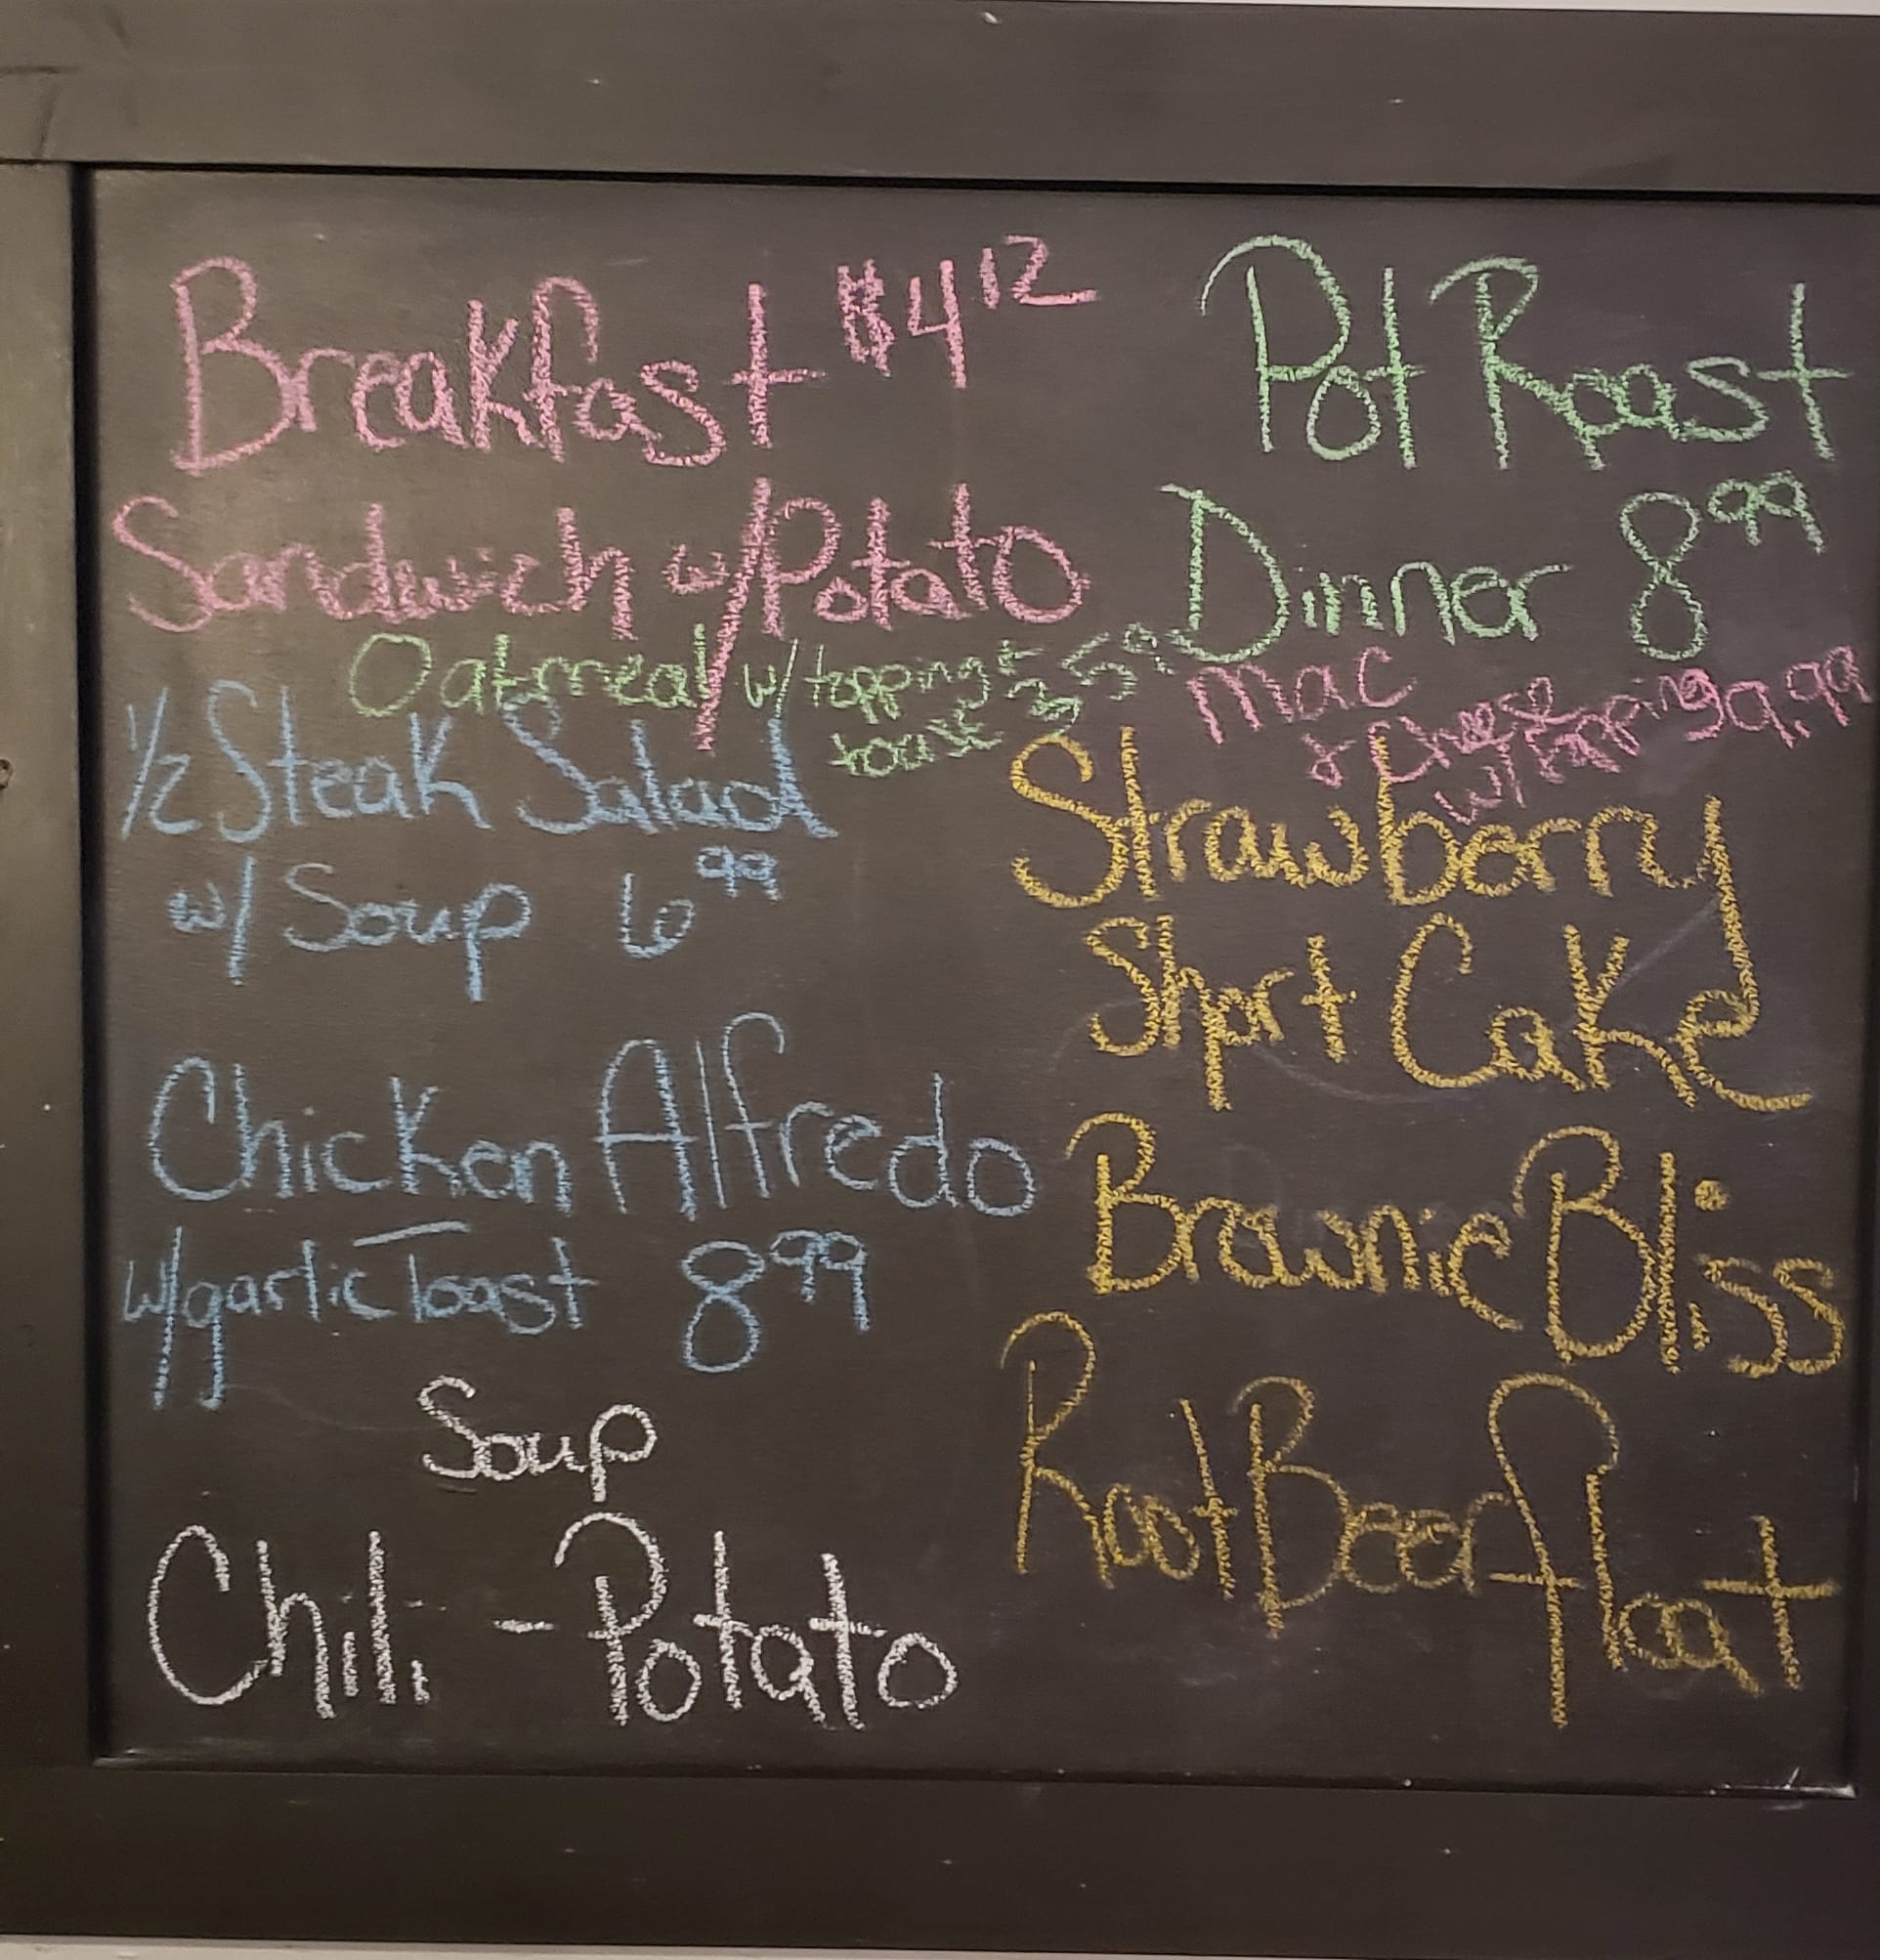 Breakfast $4.12
Sandwich w/Potato
Oatmeal w/toppings
toast
1/2 Steak Salad
w/ Soup 6.99
Chicken Alfredo
w/garlic Toast 8.99
Soup
Chili - Potato
Pot Roast
Dinner 8.99
Mac
& Cheese
w/topping 9.99
Strawberry
Short Cake
Brownie Bliss
Root Beer float